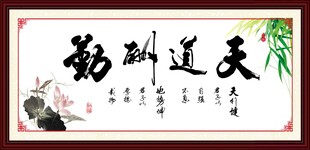 天道酬勤
天行健
君子以
自强
不息
地势坤
君子以
厚德
载物